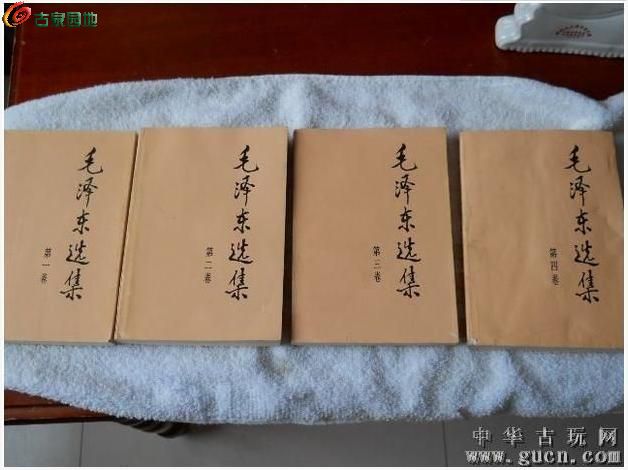 古泉园地
毛泽东选集
第一卷
毛泽东选集
第二卷
毛泽东选集
第三卷
毛泽东选集
第四卷
中华古玩网
www.gucn.com